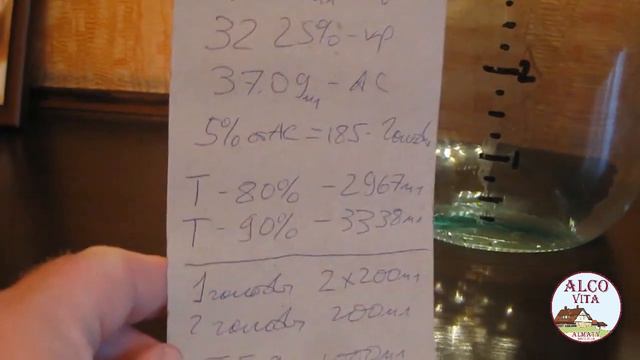 32 25% - кр
3709 мл - АС
5% от АС = 185 - головы
Т - 80% - 2967 мл
Т - 90% - 3338 мл
1 головы 2 x 200 мл
2 головы 200 мл
ALCO
VITA
ALMATY